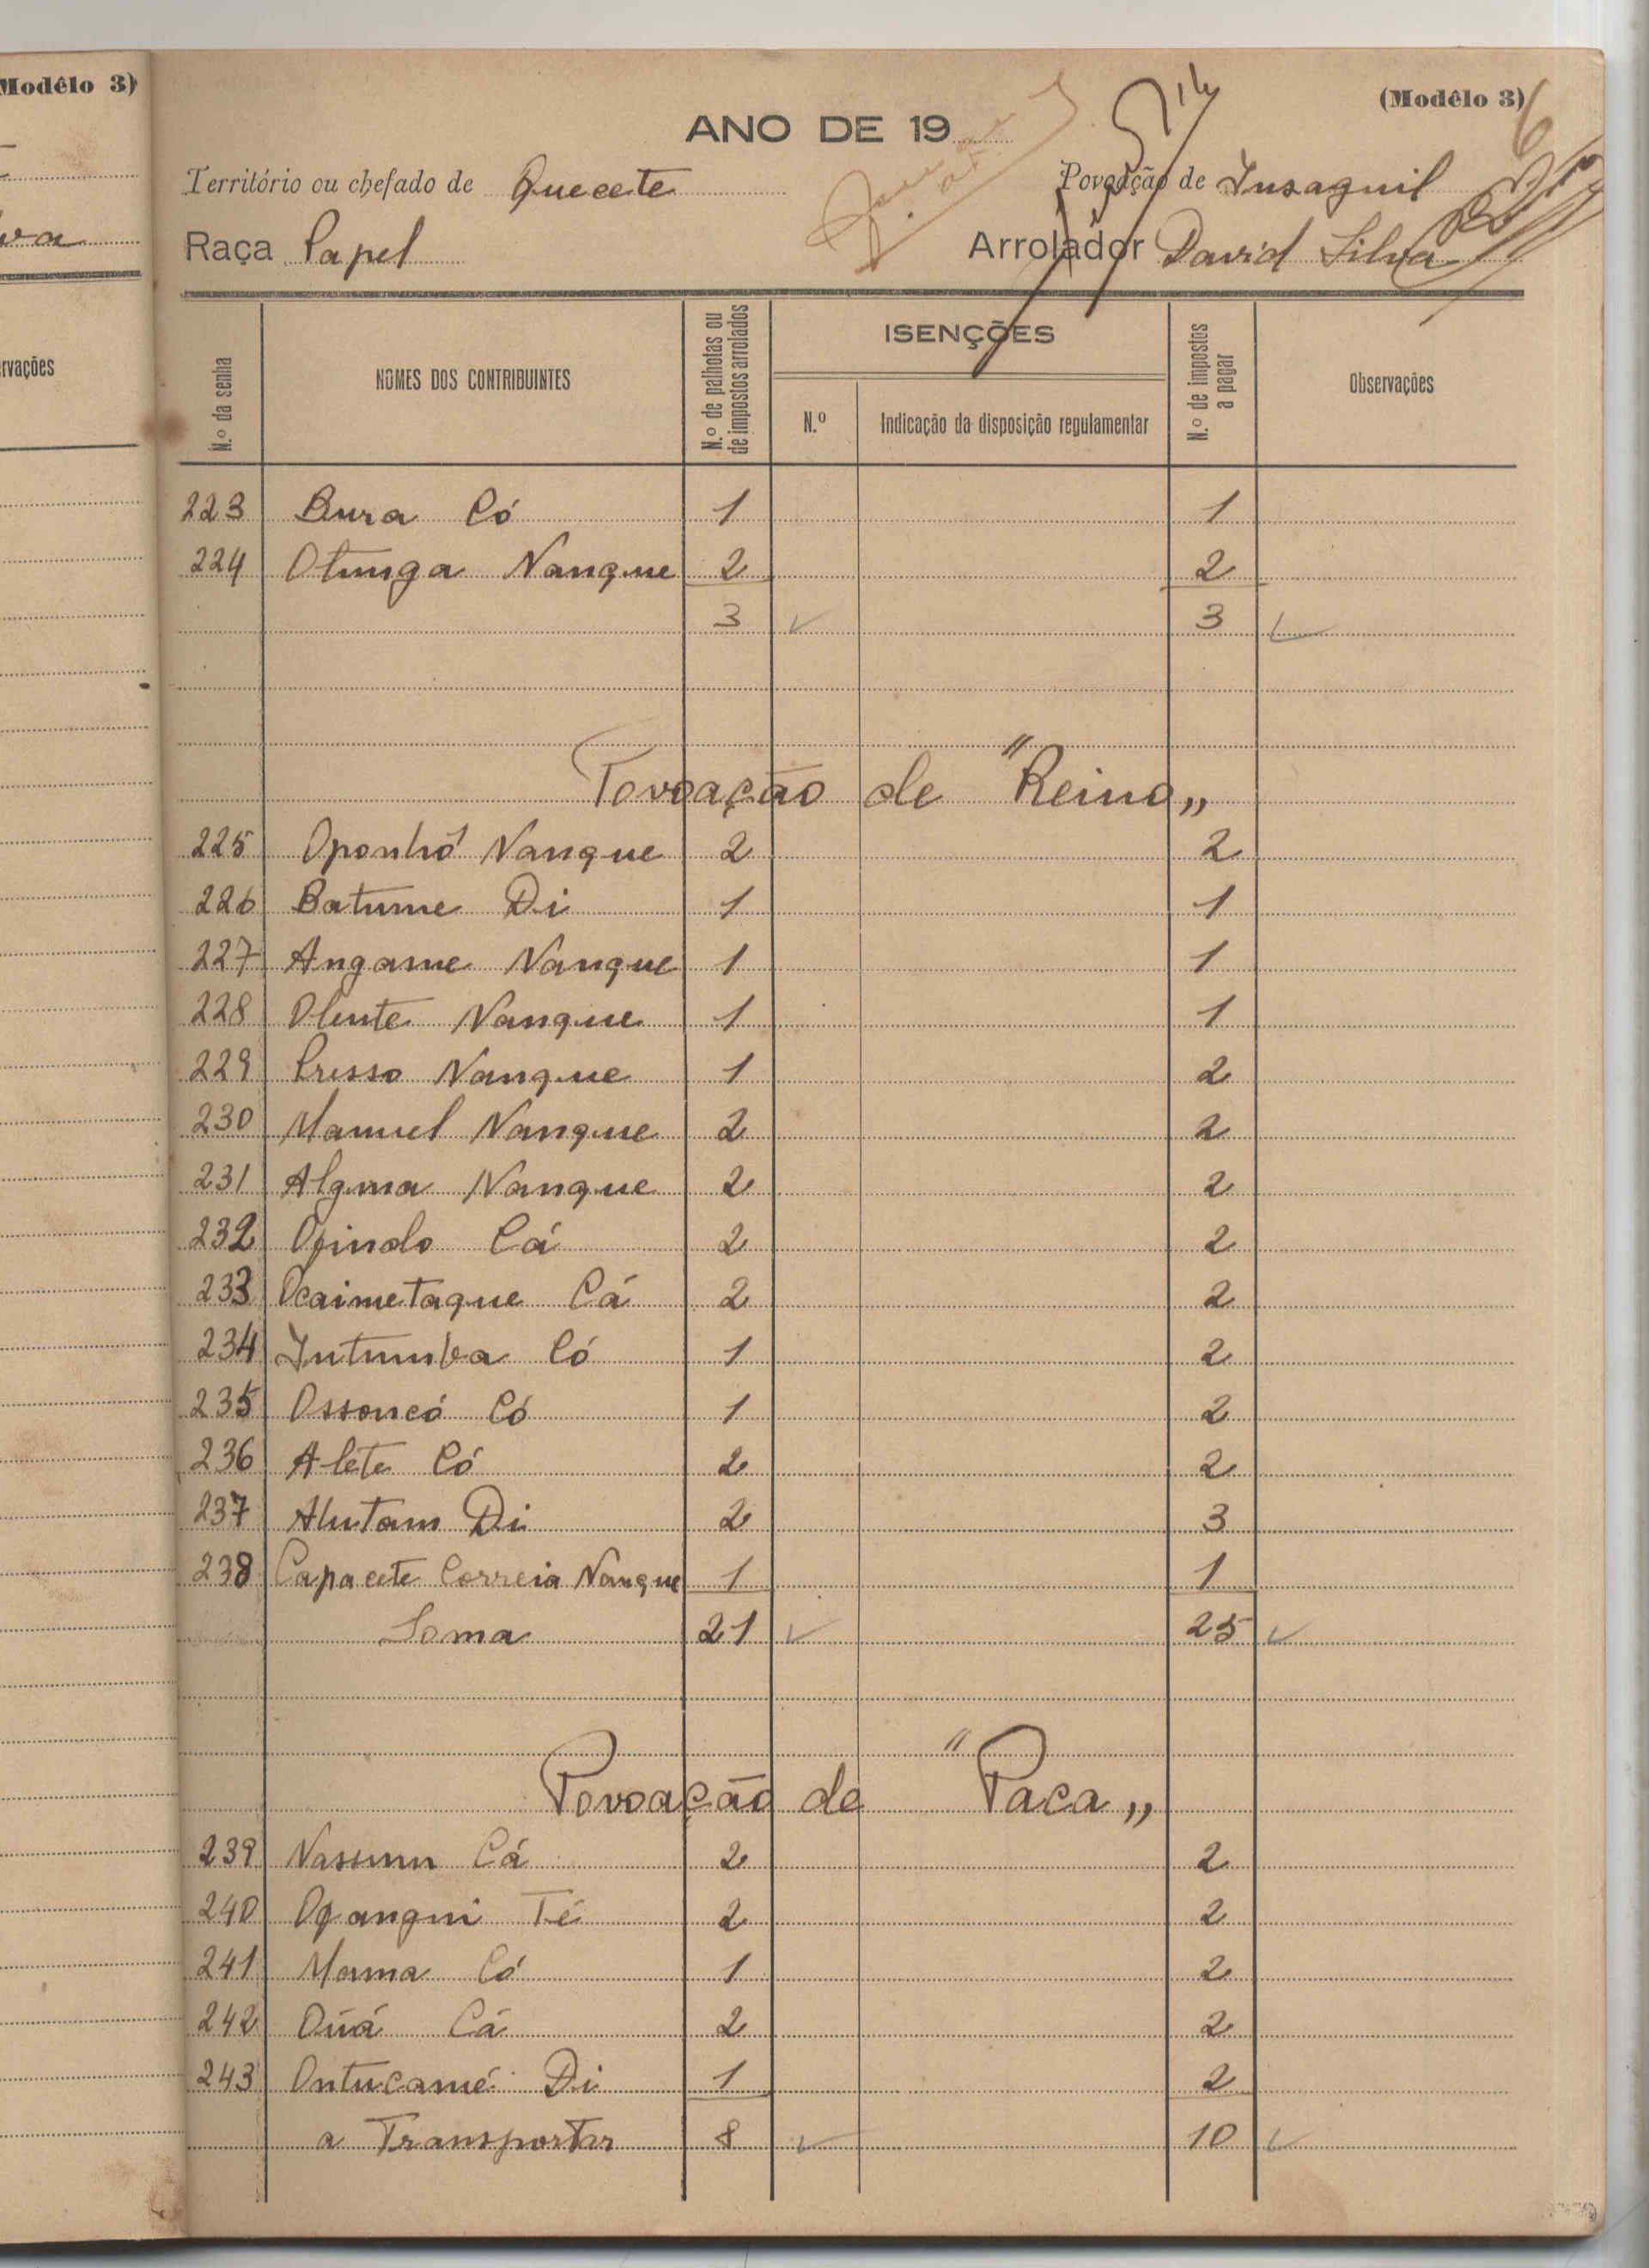 Modêlo 3)
va
rvações
(Modêlo 3)
6
ANO DE 19
Território ou chefado de Quecete Povoação de Insaguil
Raça Papel Arrolador David Silva
N.º da senha
NOMES DOS CONTRIBUINTES
N.º de palhotas ou de impostos arrolados
ISENÇÕES
N.º
Indicação da disposição regulamentar
N.º de impostos a pagar
Observações
223 Bura Có 1 1
224 Otunga Nanque 2 2
3 ✓ 3 ✓
Povoação de "Reino„
225 Oponhó Nanque 2 2
226 Batume Di 1 1
227 Angame Nanque 1 1
228 Olente Nanque 1 1
229 Cresso Nanque 1 2
230 Manuel Nanque 2 2
231 Alguma Nanque 2 2
232 Opindo Cá 2 2
233 Ocaimetaque Cá 2 2
234 Intumba Có 1 2
235 Ossoncó Có 1 2
236 Alete Có 2 2
237 Alutam Di 2 3
238 Capacete Correia Nanque 1 1
Soma 21 ✓ 25 ✓
Povoação de "Paca„
239 Nassum Cá 2 2
240 Oqangui Té 2 2
241 Mama Có 1 2
242 Ouá Cá 2 2
243 Ontucamé Di 1 2
a Transportar 8 ✓ 10 ✓